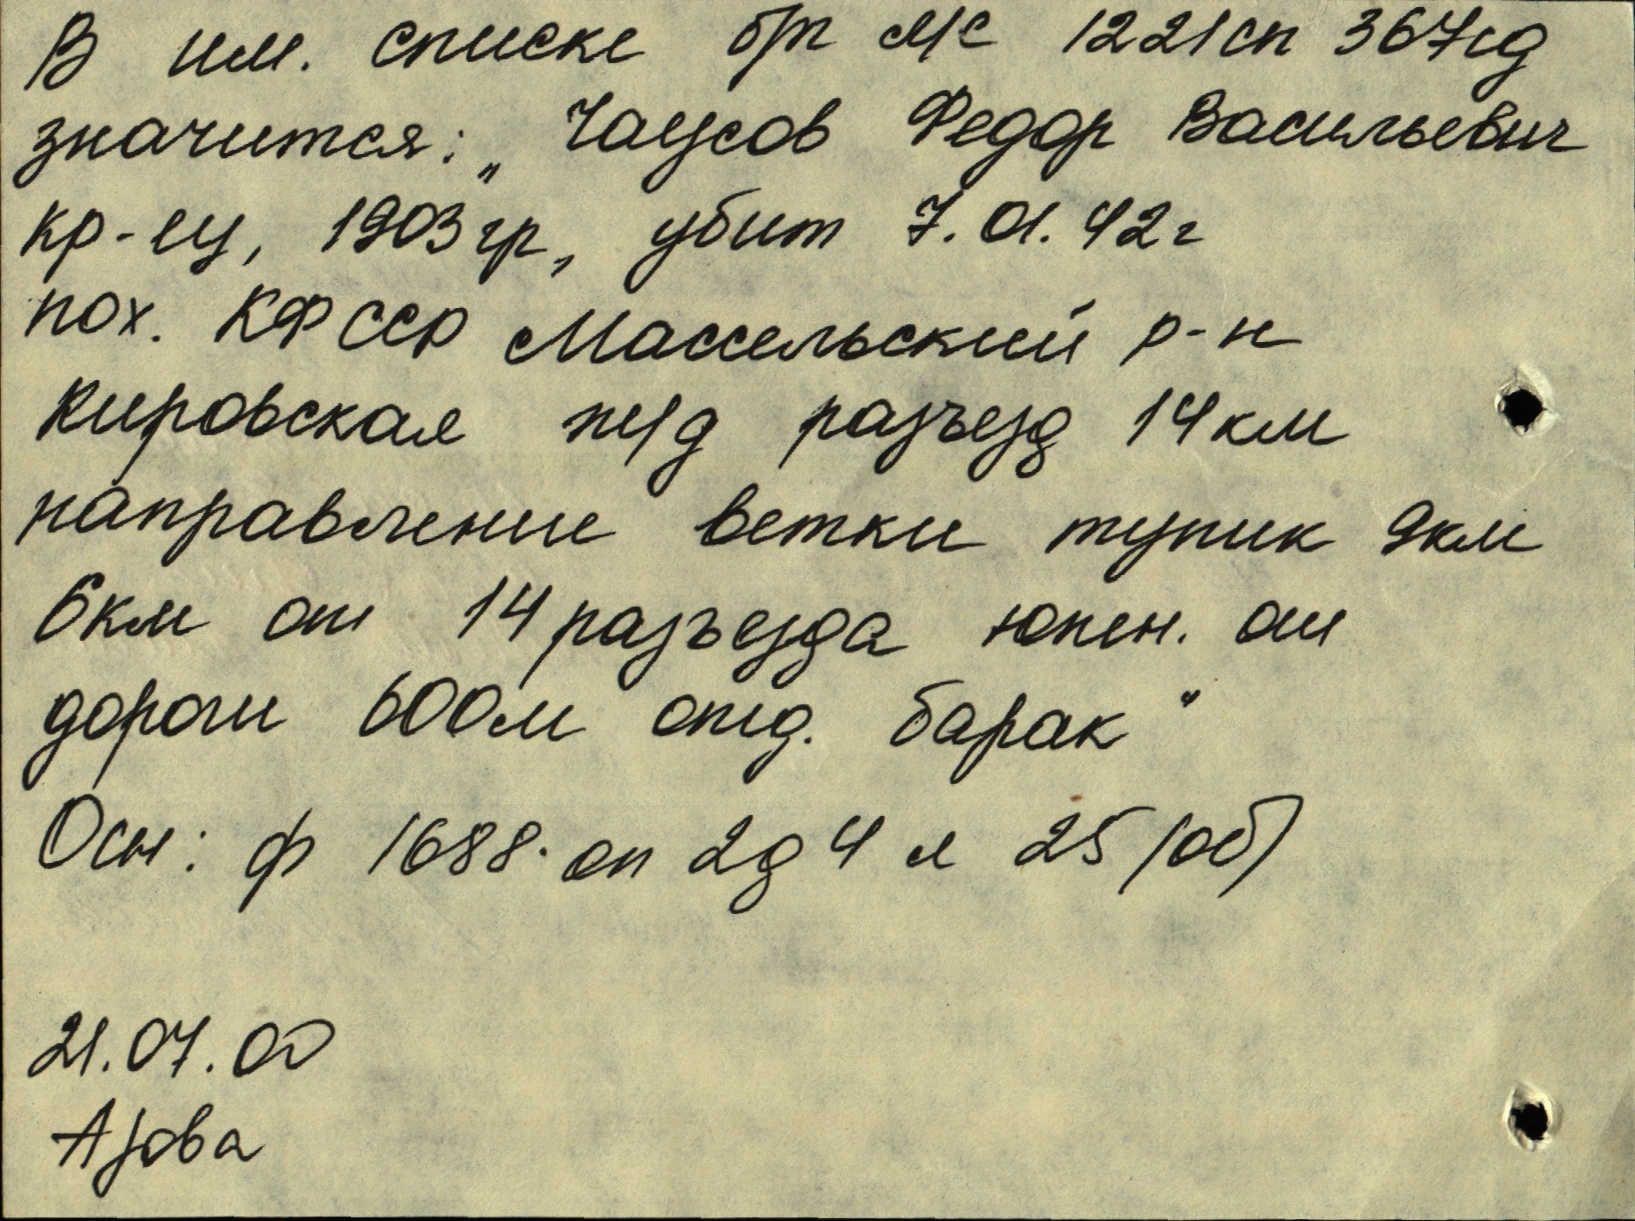 В им. списке б/п м/с 1221сп 367сд
значится: „Чаусов Федор Васильевич
кр-ец, 1903гр, убит 7.01.42г
пох. КФССР Массельский р-н
Кировская ж/д разъезд 14км
направление ветки тупик 9км
6км от 14 разъезда южн. от
дороги 600м отд. барак"
Осн: ф 1688 оп 2 д 4 л 25 (об)
21.07.00
Азова